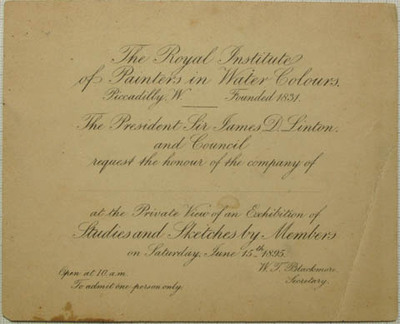 The Royal Institute
of Painters in Water Colours,
Piccadilly, W. Founded 1831.
The President Sir James D. Linton,
and Council
request the honour of the company of
at the Private View of an Exhibition of
Studies and Sketches by Members
on Saturday, June 15th 1895.
Open at 10 a.m. W. T. Blackmore,
To admit one person only. Secretary.